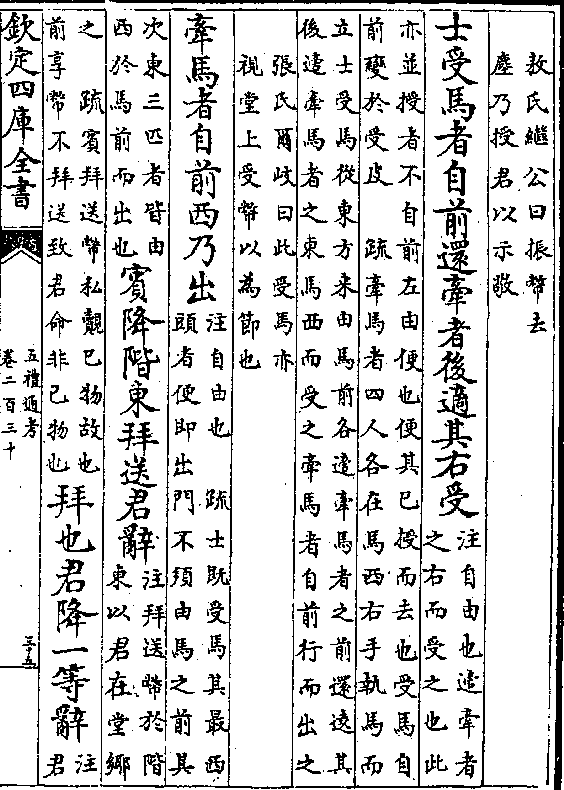 敖氏繼公曰振幣去
塵乃授君以示敬
士受馬者自前還牽者後適其右受
注自由也遶牽者
之右而受之也此
亦並授者不自前左由便也便其已授而去也受馬自
前變於受皮　疏牽馬者四人各在馬西右手執馬而
立士受馬從東方来由馬前各遶牽馬者之前還遶其
後遶牽馬者之東馬西而受之牽馬者自前行而出之
張氏爾岐曰此受馬亦
視堂上受幣以為節也
牽馬者自前西乃出
注自由也　疏士既受馬其最西
頭者便即出門不須由馬之前其
次東三匹者皆由
西於馬前而出也
賓降階東拜送君辭
注拜送幣於階
東以君在堂鄉
之　疏賓拜送幣私覿已物故也
前享幣不拜送致君命非已物也
拜也君降一等辭
注
君
欽定四庫全書
五禮通考
卷二百三十
三十五